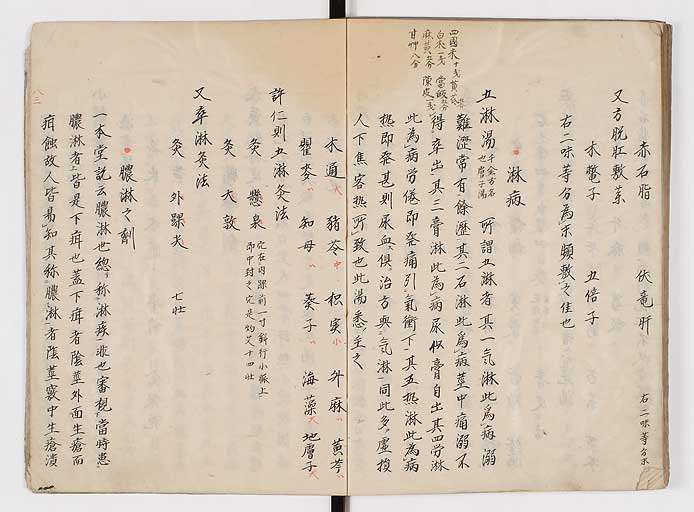 赤石脂 伏竜肝 右二味等分末
又方脱肛敷薬
木鼈子 五倍子
右二味等分為末頻敷之佳也
淋病
四國米十戔 黄芪
白朮一戔 當皈五分
麻黄五分 陳皮一戔
甘艸八分
五淋湯 千金方名也膚子湯 所謂五淋者其一气淋此為病溺
難澀常有餘瀝其二石淋此為病莖中痛溺不
得卒出其三膏淋此為病尿似膏自出其四労淋
此為病労倦即発痛引氣衝下其五熱淋此為病
熱即発甚則尿血俱治方與气淋同此多虚損
人下焦客熱所致也此湯悉主之
木通大 猪苓中 枳実小 升麻 黄芩
瞿麥 知母 葵子 海藻大 地膚子大
許仁則五淋灸法
灸 懸泉 穴在内踝前一寸斜行小脈上
即中封之穴是灼艾十四壮
灸 大敦
又卒淋灸法
灸 外踝尖 七壮
膿淋之劑
一本堂説云膿淋世總称淋疾非也審視當時患
膿淋者皆是下疳也蓋下疳者陰莖外面生瘡而
疳蝕故人皆易知其称膿淋者陰莖竅中生瘡潰